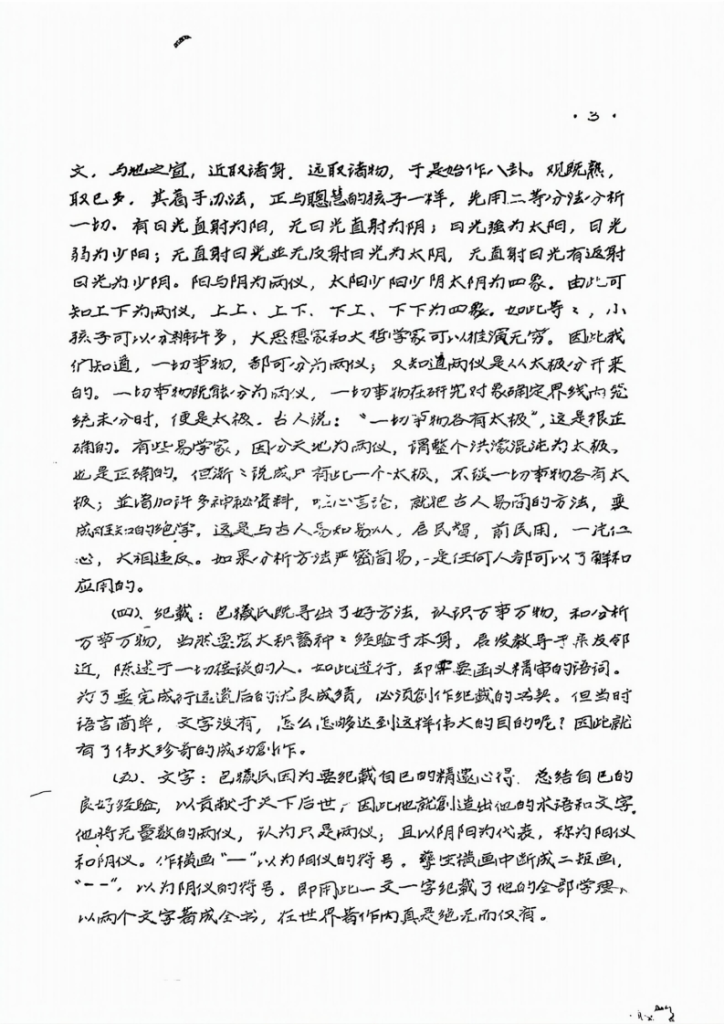 ·3·
文,与地之宜,近取诸身,远取诸物,于是始作八卦。观既熟,
取已多,其着手办法,正与聪慧的孩子一样,先用二等分法分析
一切。有日光直射为阳,无日光直射为阴;日光强为太阳,日光
弱为少阳;无直射日光並无反射日光为太阴,无直射日光有返射
日光为少阴。阳与阴为两仪,太阳少阳少阴太阴为四象。由此可
知上下为两仪,上上、上下、下上、下下为四象。如此等々,小
孩子可以分辨许多,大思想家和大哲学家可以推演无穷。因此我
们知道,一切事物,都可分为两仪;又知道两仪是从太极分开来
的。一切事物既能分为两仪,一切事物在研究对象确定界线内笼
统未分时,便是太极。古人说:“一切事物各有太极”,这是很正
确的。有些易学家,因分天地为两仪,谓整个洪濛混沌为太极。
也是正确的,但渐々说成只有此一个太极,不谈一切事物各有太
极;並增加许多神秘资料,唯心言论,就把古人易简的方法,变
成难知的绝学,这是与古人易知易从,启民智,前民用,一片仁
心,大相违反。如果分析方法严密简易,是任何人都可以了解和
应用的。
(四)、纪载:包牺氏既寻出了好方法,认识万事万物,和分析
万事万物,当然要宏大积蓄种々经验于本身,启发教导于亲友邻
近,陈述于一切接谈的人。如此进行,却需要函义精审的语词。
为了要完成行远遗后的优良成绩,必须创作纪载的书契。但当时
语言简单,文字没有,怎么能够达到这样伟大的目的呢?因此就
有了伟大珍奇的成功创作。
(五)、文字:包牺氏因为要纪载自己的精邃心得,总结自己的
良好经验,以贡献于天下后世,因此他就创造出他的术语和文字。
他将无量数的两仪,认为只是两仪;且以阴阳为代表,称为阳仪
和阴仪。作横画“一”以为阳仪的符号。横画中断成二短画,
“--”,以为阴仪的符号。即用此一文一字纪载了他的全部学理、
以两个文字著成全书,在世界著作内真是绝无而仅有。